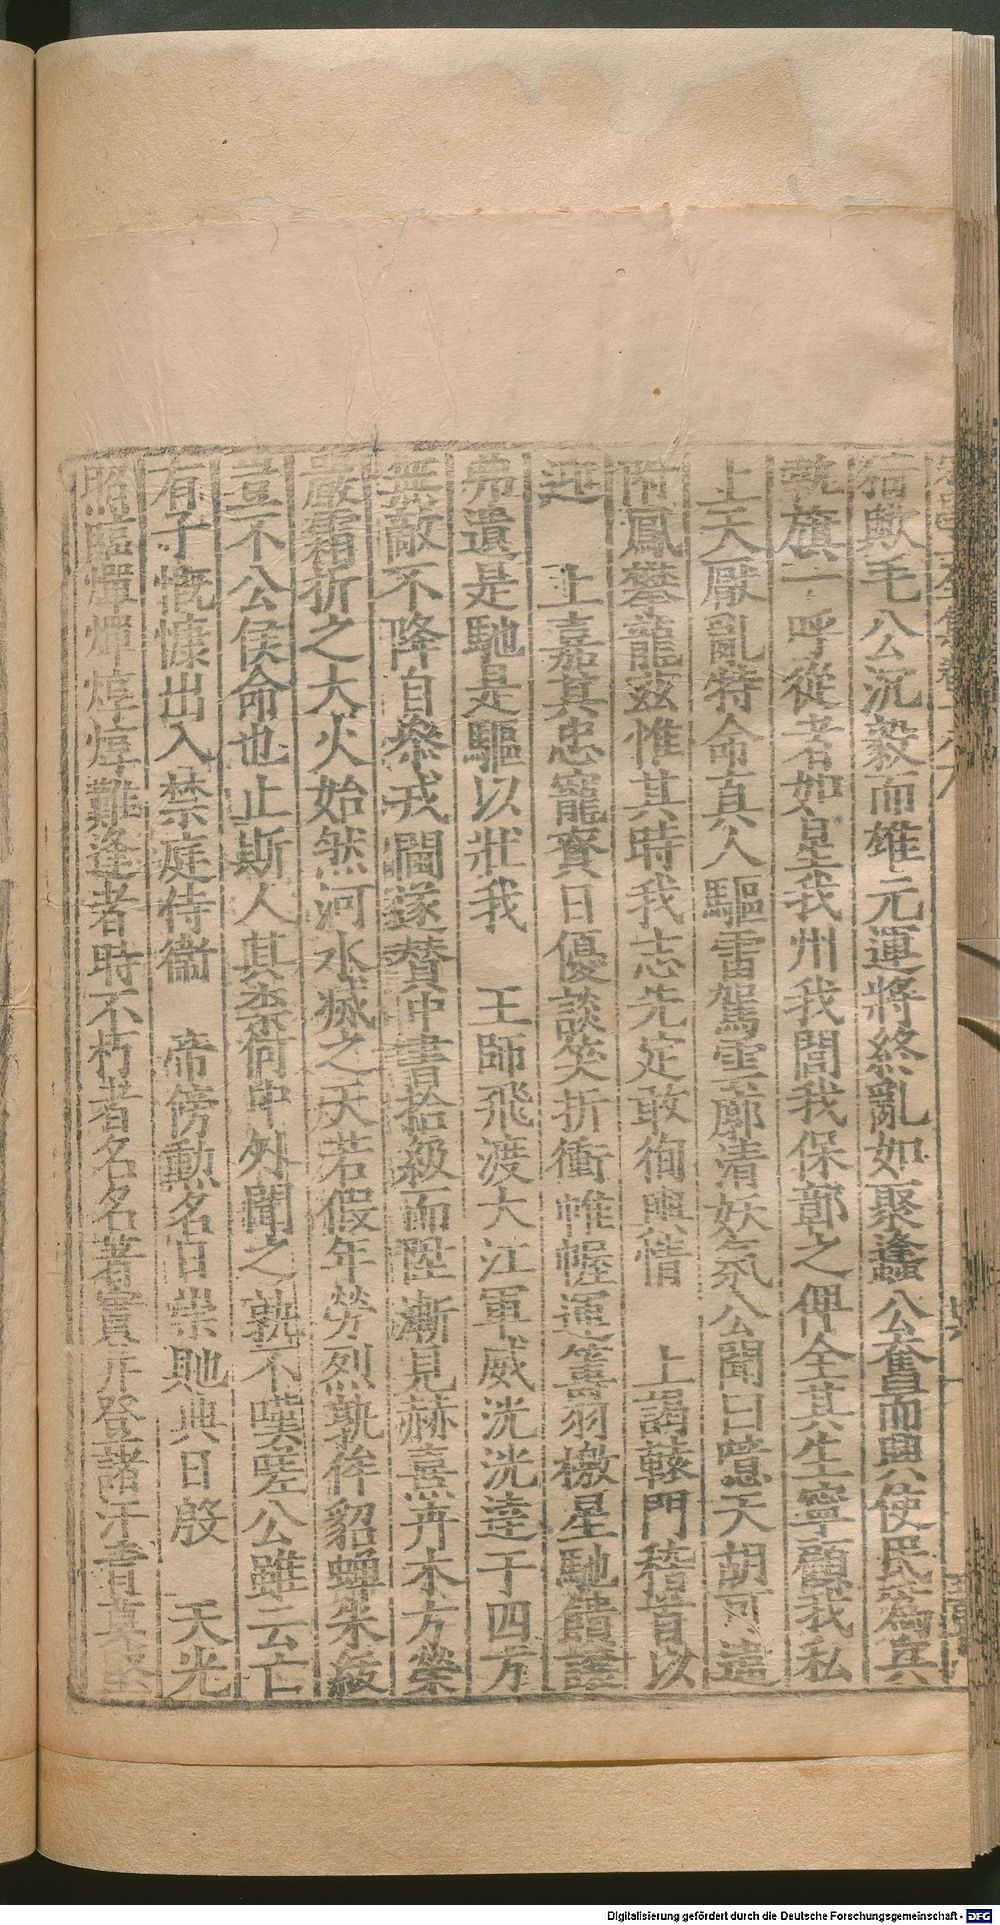 猗歟毛公沉毅而雄元運將終亂如聚蠭公奮而興使民為兵
執旗一呼從者如星我州我閭我保鄣之俾全其生寧顧我私
上天厭亂特命真人驅雷駕雲廓清妖氛公聞曰噫天胡可違
附鳳攀龍茲惟其時我志先定敢徇輿情　上謁轅門稽首以
迎　上嘉其忠寵賚日優談笑折衝帷幄運籌羽檄星馳饋謹
弗遺是馳是驅以壯我　王師飛渡大江軍威洸洸達于四方
無敵不降自叅戎閫遂贊中書拾級而陞漸見赫熹卉木方榮
嚴霜折之大火始然河水㓕之天若假年勞烈孰侔貂蟬朱紱
豈不公侯命也止斯人其柰何中外聞之孰不嘆嗟公雖云亡
有子慨慷出入禁庭侍衞　帝傍勳名日崇貤典日殷　天光
昭臨燀燀焞焞難逢者時不朽者名名著實并登諸汗青莫
Digitalisierung gefördert durch die Deutsche Forschungsgemeinschaft - DFG